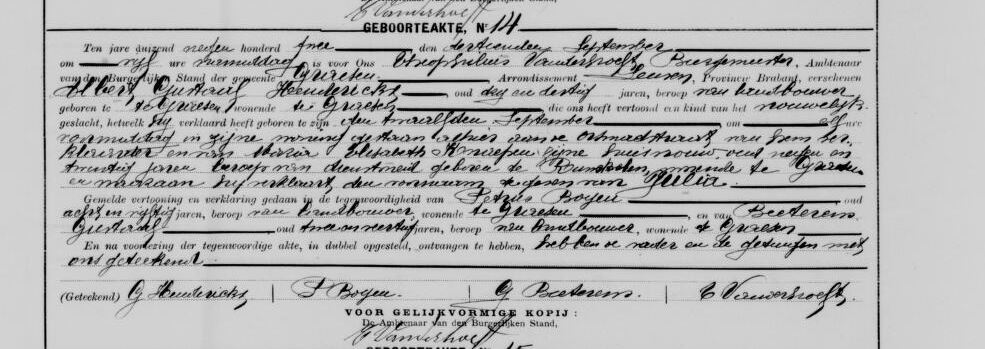 De Ambtenaar van den Burgerlijken Stand,
E Vanderhoeft
GEBOORTEAKTE, Nr 14
Ten jare duizend negen honderd twee den dertienden September
om vijf ure namiddag is voor Ons Theophilus Vanderhoeft Burgemeester, Ambtenaar
van den Burgerlijken Stand der gemeente Gursen Arrondissement Leuven, Provincie Brabant, verschenen
Albert Gustaaf Henderickx, oud dry en dertig jaren, beroep van landbouwer
geboren te wonende te die ons heeft vertoond een kind van het vrouwelijk
geslacht, hetwelk hij verklaard heeft geboren te zijn den twaalfden September om elf ure
voormiddag in zijne woning gestaan alhier aan de van hem ver-
klaarder en van Maria Elisabeth zijne huisvrouw, oud negen en
twintig jaren beroep van dienstmeid geboren te wonende te
en waaraan hij verklaart, den voornaam te geven van Julia.
Gemelde vertooning en verklaring gedaan in de tegenwoordigheid van Petrus Bogen oud
acht en vijftig jaren, beroep van landbouwer, wonende te en van Beeterens
Gustaaf oud twee en veertig jaren, beroep van landbouwer, wonende te
En na voorlezing der tegenwoordige akte, in dubbel opgesteld, ontvangen te hebben, hebben de vader en de getuigen met
ons geteekend.
(Geteekend) G Henderickx | P Bogen. | G Beeterens. | E Vanderhoeft.
VOOR GELIJKVORMIGE KOPIJ :
De Ambtenaar van den Burgerlijken Stand,
E Vanderhoeft
GEBOORTEAKTE, Nr 15